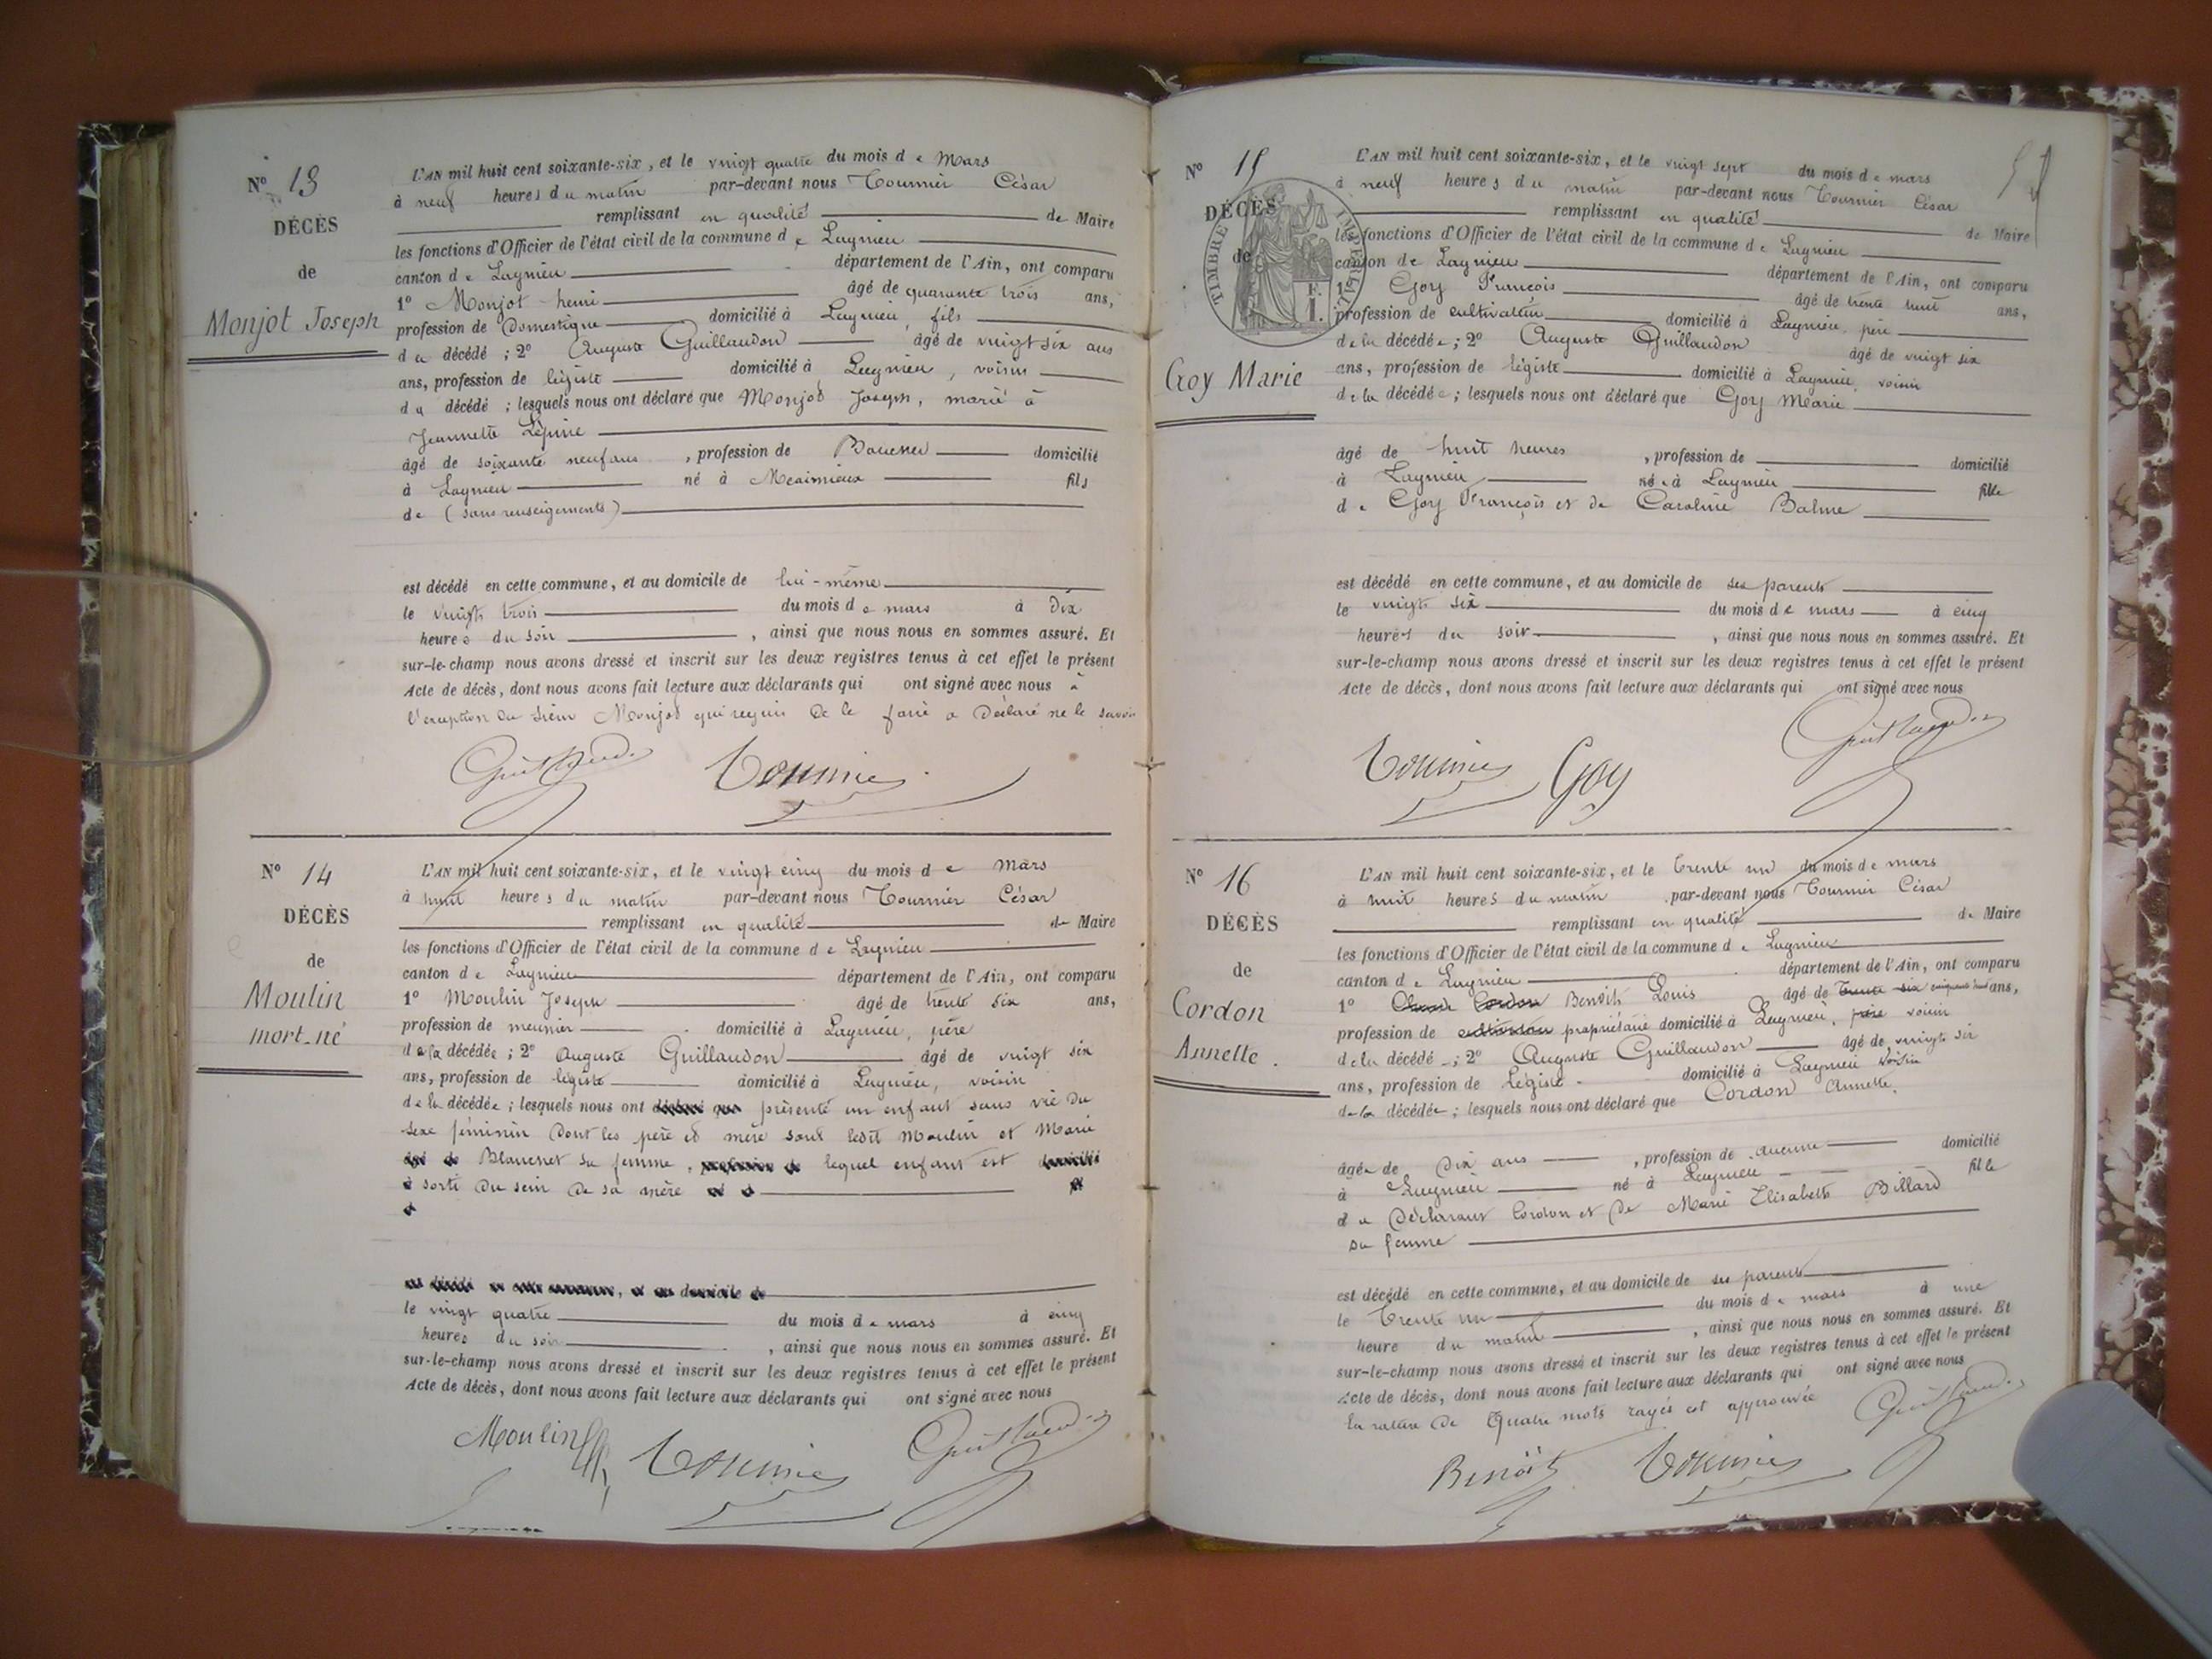 Nº 13
DÉCÈS
de
Monjot Joseph
L'AN mil huit cent soixante-six, et le vingt quatre du mois de Mars
à neuf heures du matin par-devant nous Tournier César
remplissant en qualité de Maire
les fonctions d'Officier de l'état civil de la commune de Lagnieu
canton de Lagnieu département de l'Ain, ont comparu
1º Monjot henri âgé de quarante trois ans,
profession de Domestique domicilié à Lagnieu, fils
du décédé ; 2º Auguste Guillaudon âgé de vingt six ans
ans, profession de légiste domicilié à Lagnieu, voisin
du décédé ; lesquels nous ont déclaré que Monjot Joseph, marié à
Jeannette Lépine
âgé de soixante neuf ans, profession de domicilié
à Lagnieu né à Meximieux fils
de (sans renseignements)
est décédé en cette commune, et au domicile de lui-même
le vingt trois du mois de mars à Dix
heures du soir, ainsi que nous nous en sommes assuré. Et
sur-le-champ nous avons dressé et inscrit sur les deux registres tenus à cet effet le présent
Acte de décès, dont nous avons fait lecture aux déclarants qui ont signé avec nous à
l'exeption du sieur Monjot qui requis de le faire a Déclaré ne le savoir
Guillaudon Tournier
Nº 14
DÉCÈS
de
Moulin
mort-né
L'AN mil huit cent soixante-six, et le vingt cinq du mois de Mars
à huit heures du matin par-devant nous Tournier César
remplissant en qualité de Maire
les fonctions d'Officier de l'état civil de la commune de Lagnieu
canton de Lagnieu département de l'Ain, ont comparu
1º Moulin Joseph âgé de trente six ans,
profession de meunier domicilié à Lagnieu, père
de la décédée ; 2º Auguste Guillaudon âgé de vingt six
ans, profession de légiste domicilié à Lagnieu, voisin
de la décédée ; lesquels nous ont déclaré que présenté un enfant sans vie du
sexe féminin Dont les père et mère sont ledit Moulin et Marie
Blanchet sa femme, lequel enfant est
sorti du sein de sa mère
le vingt quatre du mois de mars à cinq
heures du soir, ainsi que nous nous en sommes assuré. Et
sur-le-champ nous avons dressé et inscrit sur les deux registres tenus à cet effet le présent
Acte de décès, dont nous avons fait lecture aux déclarants qui ont signé avec nous
Moulin Tournier Guillaudon
Nº 15
DÉCÈS
de
TIMBRE IMPERIAL
1 F.
Goy Marie
L'AN mil huit cent soixante-six, et le vingt sept du mois de mars
à neuf heures du matin par-devant nous Tournier César
remplissant en qualité de Maire
les fonctions d'Officier de l'état civil de la commune de Lagnieu
canton de Lagnieu département de l'Ain, ont comparu
1º Goy François âgé de trente huit ans,
profession de cultivateur domicilié à Lagnieu, père
de la décédée ; 2º Auguste Guillaudon âgé de vingt six
ans, profession de légiste domicilié à Lagnieu, voisin
de la décédée ; lesquels nous ont déclaré que Goy Marie
âgé de huit heures, profession de domicilié
à Lagnieu née à Lagnieu fille
de Goy François et de Caroline Balme
est décédé en cette commune, et au domicile de ses parents
le vingt six du mois de mars à cinq
heures du soir, ainsi que nous nous en sommes assuré. Et
sur-le-champ nous avons dressé et inscrit sur les deux registres tenus à cet effet le présent
Acte de décès, dont nous avons fait lecture aux déclarants qui ont signé avec nous
Tournier Goy Guillaudon
Nº 16
DÉCÈS
de
Cordon
Annette.
L'AN mil huit cent soixante-six, et le trente un du mois de mars
à huit heures du matin par-devant nous Tournier César
remplissant en qualité de Maire
les fonctions d'Officier de l'état civil de la commune de Lagnieu
canton de Lagnieu département de l'Ain, ont comparu
1º Cordon Benoît Louis âgé de trente six cinquante huit ans,
profession de cultivateur propriétaire domicilié à Lagnieu, père voisin
de la décédé ; 2º Auguste Guillaudon âgé de vingt six
ans, profession de légiste domicilié à Lagnieu voisin
de la décédée ; lesquels nous ont déclaré que Cordon Annette,
âgée de Dix ans, profession de aucune domicilié
à Lagnieu né à Lagnieu fille
du Déclarant Cordon et de Marie Elisabeth Billard
sa femme
est décédé en cette commune, et au domicile de ses parents
le trente un du mois de mars à une
heure du matin, ainsi que nous nous en sommes assuré. Et
sur-le-champ nous avons dressé et inscrit sur les deux registres tenus à cet effet le présent
Acte de décès, dont nous avons fait lecture aux déclarants qui ont signé avec nous
la rature de Quatre mots rayés est approuvée
Benoît Tournier Guillaudon